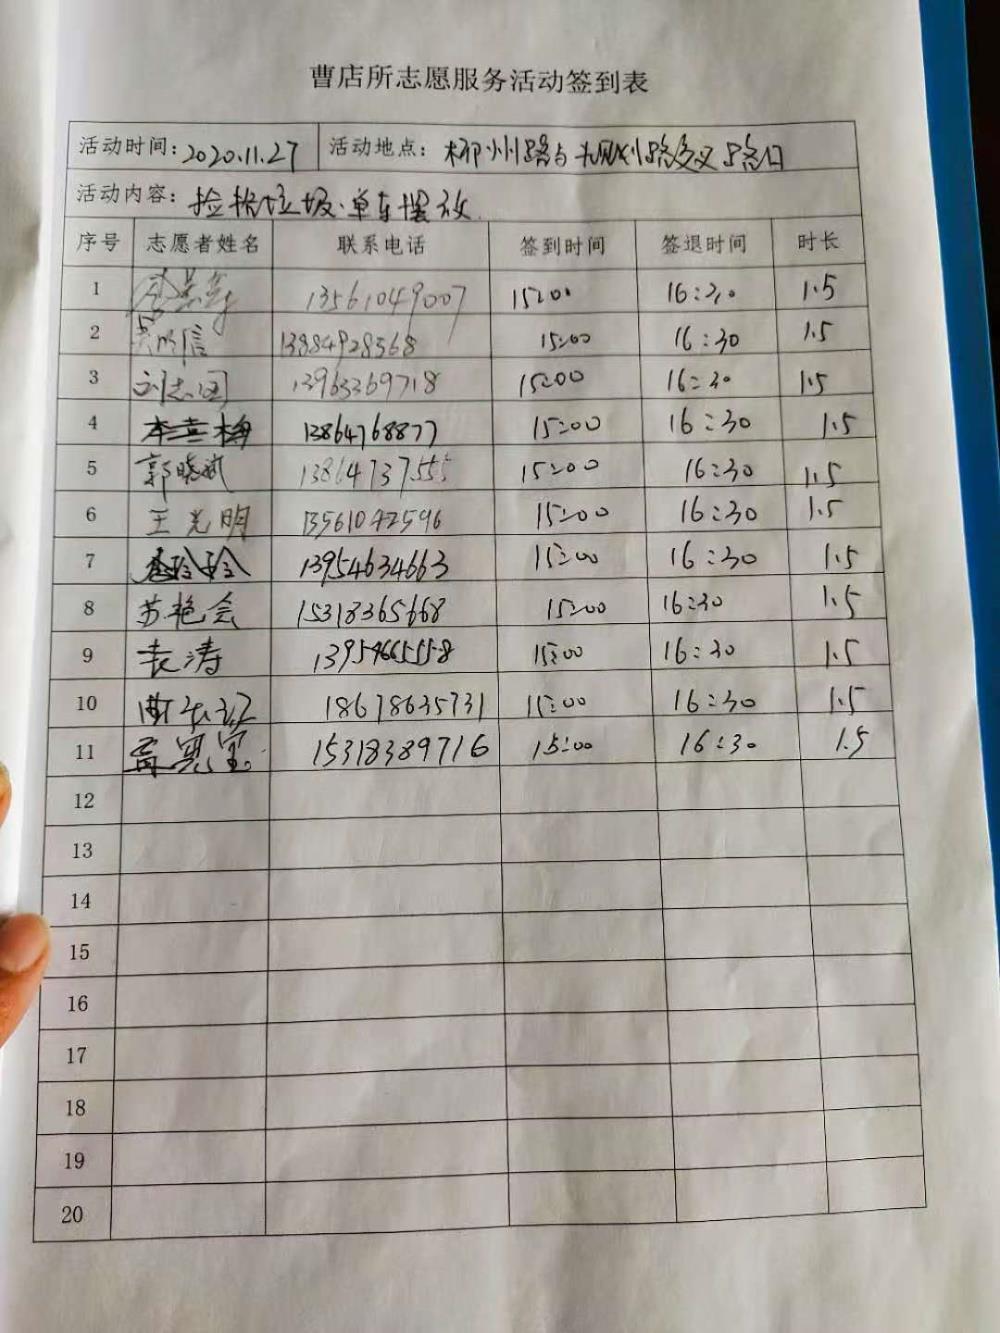 曹店所志愿服务活动签到表
活动时间：2020.11.27 活动地点：柳州路与 路交叉路口
活动内容：捡拾垃圾、单车摆放
序号 志愿者姓名 联系电话 签到时间 签退时间 时长
1 13561049007 15:00 16:30 1.5
2 13884928568 15:00 16:30 1.5
3 刘志国 13963269718 15:00 16:30 1.5
4 李喜梅 13864768877 15:00 16:30 1.5
5 郭晓斌 13864737555 15:00 16:30 1.5
6 王光明 13561042596 15:00 16:30 1.5
7 李玲玲 13954634663 15:00 16:30 1.5
8 苏艳会 15318365668 15:00 16:30 1.5
9 袁涛 13954665558 15:00 16:30 1.5
10 18678635731 15:00 16:30 1.5
11 15318389716 15:00 16:30 1.5
12
13
14
15
16
17
18
19
20